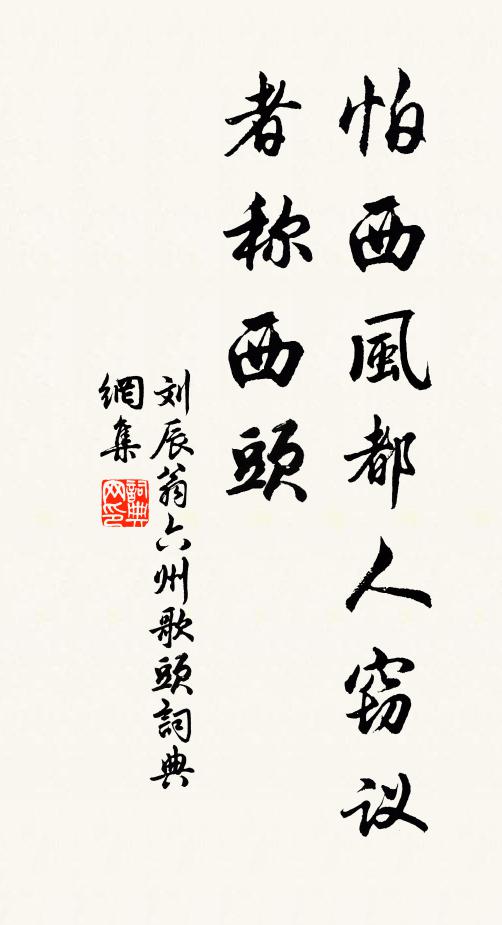 怕西風都人窃议
者称西頭
刘辰翁六州歌頭詞典
網集
詞典网印